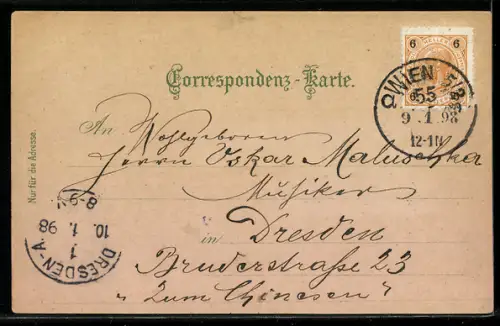 Correspondenz-Karte.
Nur für die Adresse.
6 6
WIEN 5/2
55
9.1.98
12-1N
An
Wohlgeboren
Herrn Oskar Maluschka
Musiker
in Dresden
Bruderstrasse 23
"Zum Chinesen"
8-9V
10.1.98
1
DRESDEN-A.